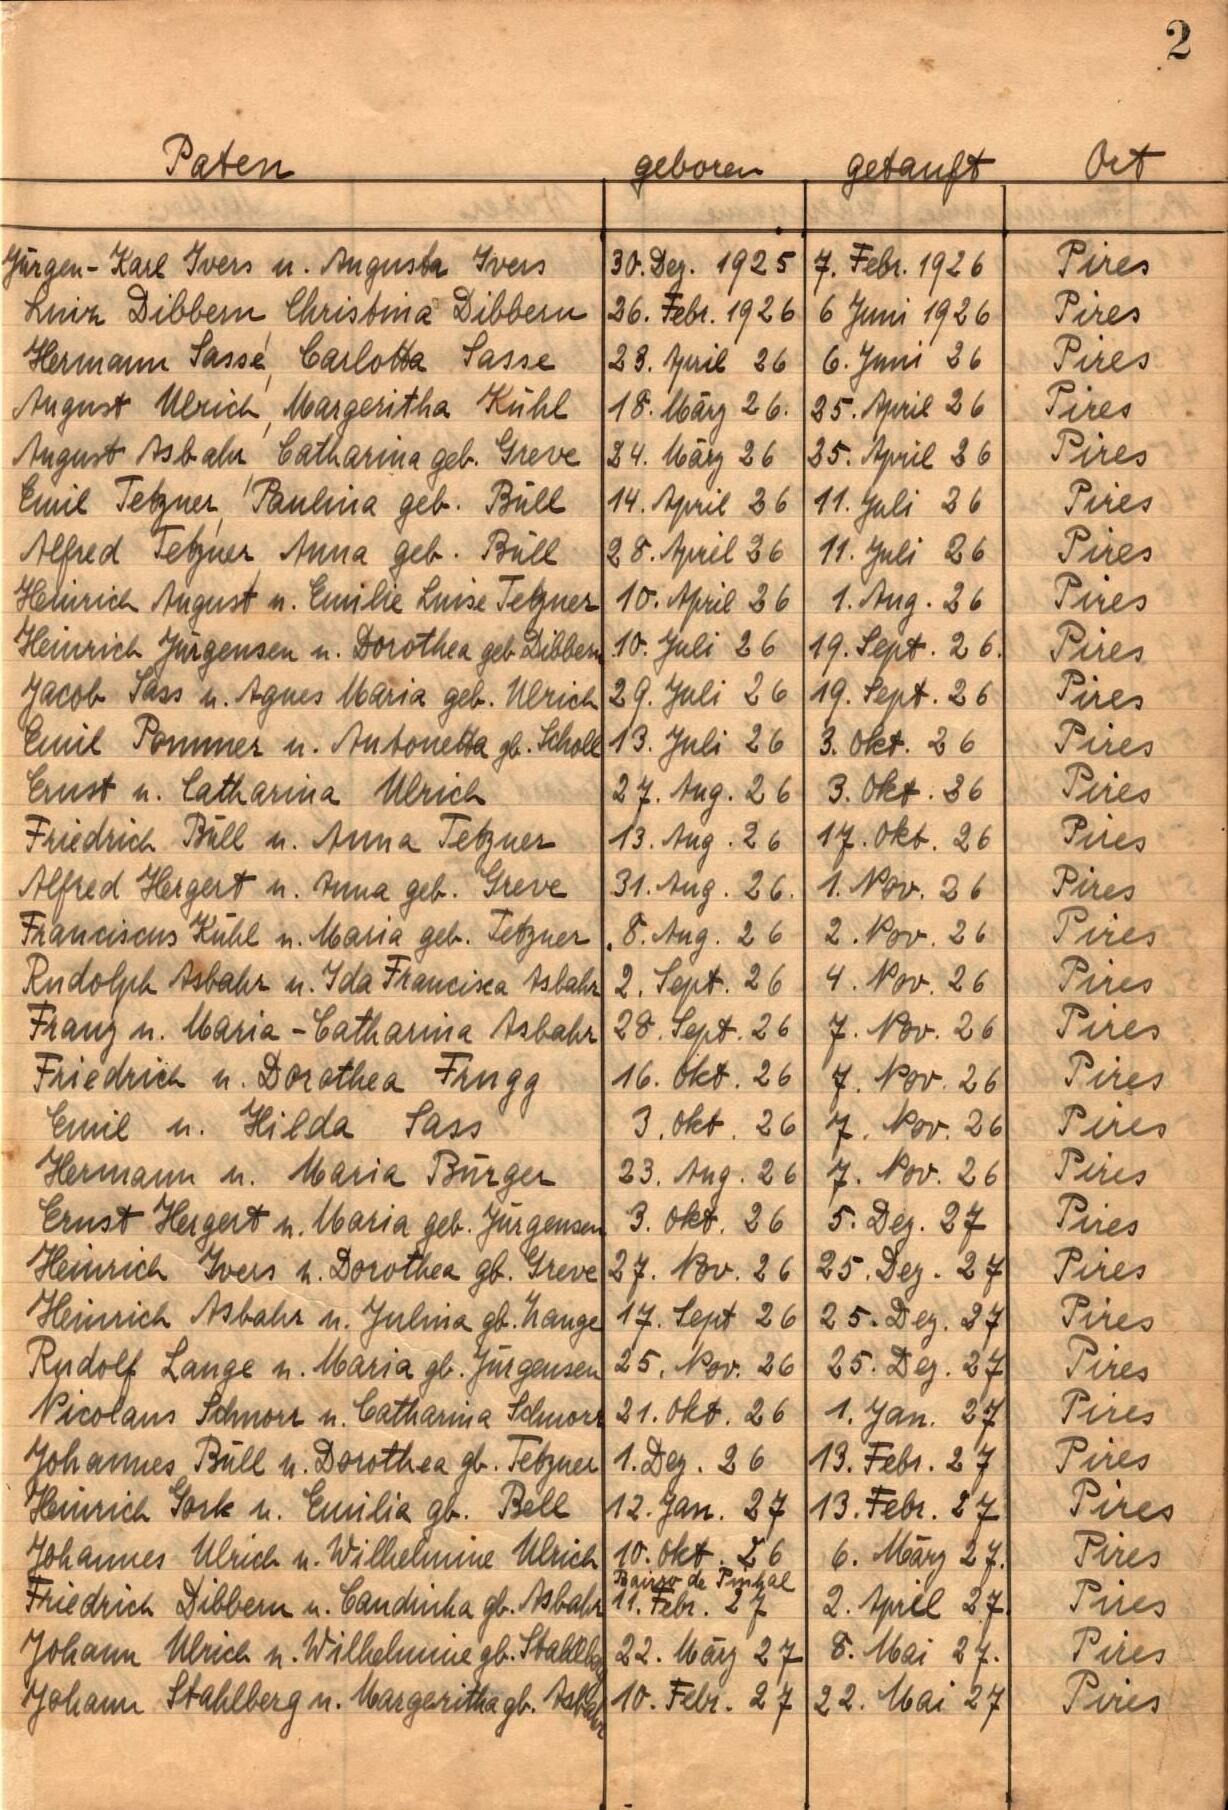 2
Paten geboren getauft Ort
Jürgen-Karl Ivers u. Augusta Ivers 30. Dez. 1925 7. Febr. 1926 Pires
Luiz Dibbern, Christina Dibbern 26. Febr. 1926 6 Juni 1926 Pires
Hermann Sasse, Carlotta Sasse 23. April 26 6. Juni 26 Pires
August Ulrich, Margeritha Kühl 18. März 26. 25. April 26 Pires
August Asbahr, Catharina geb. Greve 24. März 26 25. April 26 Pires
Emil Tetzner, Paulina geb. Büll 14. April 26 11. Juli 26 Pires
Alfred Tetzner, Anna geb. Büll 28. April 26 11. Juli 26 Pires
Heinrich August u. Emilie Luise Tetzner 10. April 26 1. Aug. 26 Pires
Heinrich Jürgensen u. Dorothea geb. Dibbern 10. Juli 26 19. Sept. 26. Pires
Jacob Sass u. Agnes Maria geb. Ulrich 29. Juli 26 19. Sept. 26 Pires
Emil Pommer u. Antonetta gb. Scholl 13. Juli 26 3. Okt. 26 Pires
Ernst u. Catharina Ulrich 27. Aug. 26 3. Okt. 26 Pires
Friedrich Büll u. Anna Tetzner 13. Aug. 26 17. Okt. 26 Pires
Alfred Hergert u. Anna geb. Greve 31. Aug. 26. 1. Nov. 26 Pires
Franciscus Kühl u. Maria geb. Tetzner 8. Aug. 26 2. Nov. 26 Pires
Rudolph Asbahr u. Ida Francisca Asbahr 2. Sept. 26 4. Nov. 26 Pires
Franz u. Maria-Catharina Asbahr 28. Sept. 26 7. Nov. 26 Pires
Friedrich u. Dorothea Frugg 16. Okt. 26 7. Nov. 26 Pires
Emil u. Hilda Sass 3. Okt. 26 7. Nov. 26 Pires
Hermann u. Maria Bürger 23. Aug. 26 7. Nov. 26 Pires
Ernst Hergert u. Maria geb. Jürgensen 3. Okt. 26 5. Dez. 27 Pires
Heinrich Ivers u. Dorothea gb. Greve 27. Nov. 26 25. Dez. 27 Pires
Heinrich Asbahr u. Julina gb. Lange 17. Sept 26 25. Dez. 27 Pires
Rudolf Lange u. Maria gb. Jürgensen 25. Nov. 26 25. Dez. 27 Pires
Nicolaus Schnorr u. Catharina Schnorr 21. Okt. 26 1. Jan. 27 Pires
Johannes Büll u. Dorothea gb. Tetzner 1. Dez. 26 13. Febr. 27 Pires
Heinrich Gork u. Emilia gb. Bell 12. Jan. 27 13. Febr. 27 Pires
Johannes Ulrich u. Wilhelmine Ulrich 10. Okt. 26 6. März 27. Pires
Bairro de Pinhal
Friedrich Dibbern u. Candinha gb. Asbahr 11. Febr. 27 2. April 27. Pires
Johann Ulrich u. Wilhelmine gb. Stahlberg 22. März 27 8. Mai 27. Pires
Johann Stahlberg u. Margeritha gb. Asbahr 10. Febr. 27 22. Mai 27 Pires